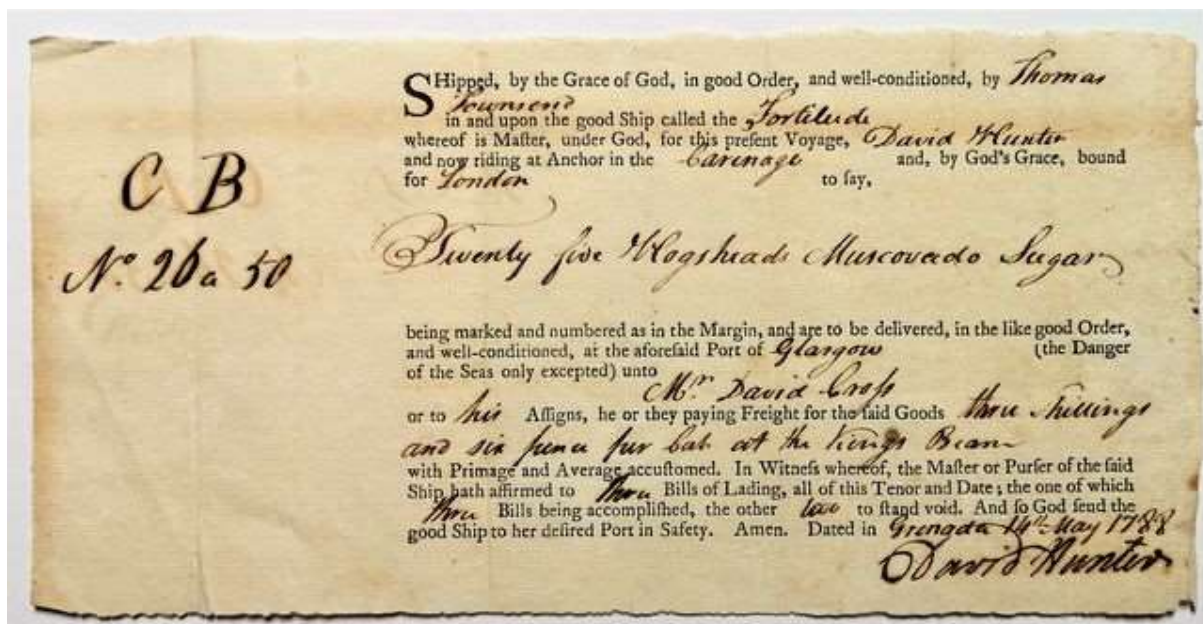 SHipped, by the Grace of God, in good Order, and well-conditioned, by Thomas
Townsend
in and upon the good Ship called the Fortitude
whereof is Maſter, under God, for this preſent Voyage, David Hunter
and now riding at Anchor in the Carenage and, by God's Grace, bound
for London to ſay,
C B
Twenty five Hogsheads Muscovado Sugar
No. 26 a 50
being marked and numbered as in the Margin, and are to be delivered, in the like good Order,
and well-conditioned, at the aforeſaid Port of Glasgow (the Danger
of the Seas only excepted) unto
Mr. David Croſs
or to his Aſſigns, he or they paying Freight for the ſaid Goods three Shillings
and six pence per at the Kings Beam
with Primage and Average accuſtomed. In Witneſs whereof, the Maſter or Purſer of the ſaid
Ship hath affirmed to three Bills of Lading, all of this Tenor and Date; the one of which
three Bills being accompliſhed, the other two to ſtand void. And ſo God ſend the
good Ship to her deſired Port in Safety. Amen. Dated in Grenada 14th May 1788
David Hunter